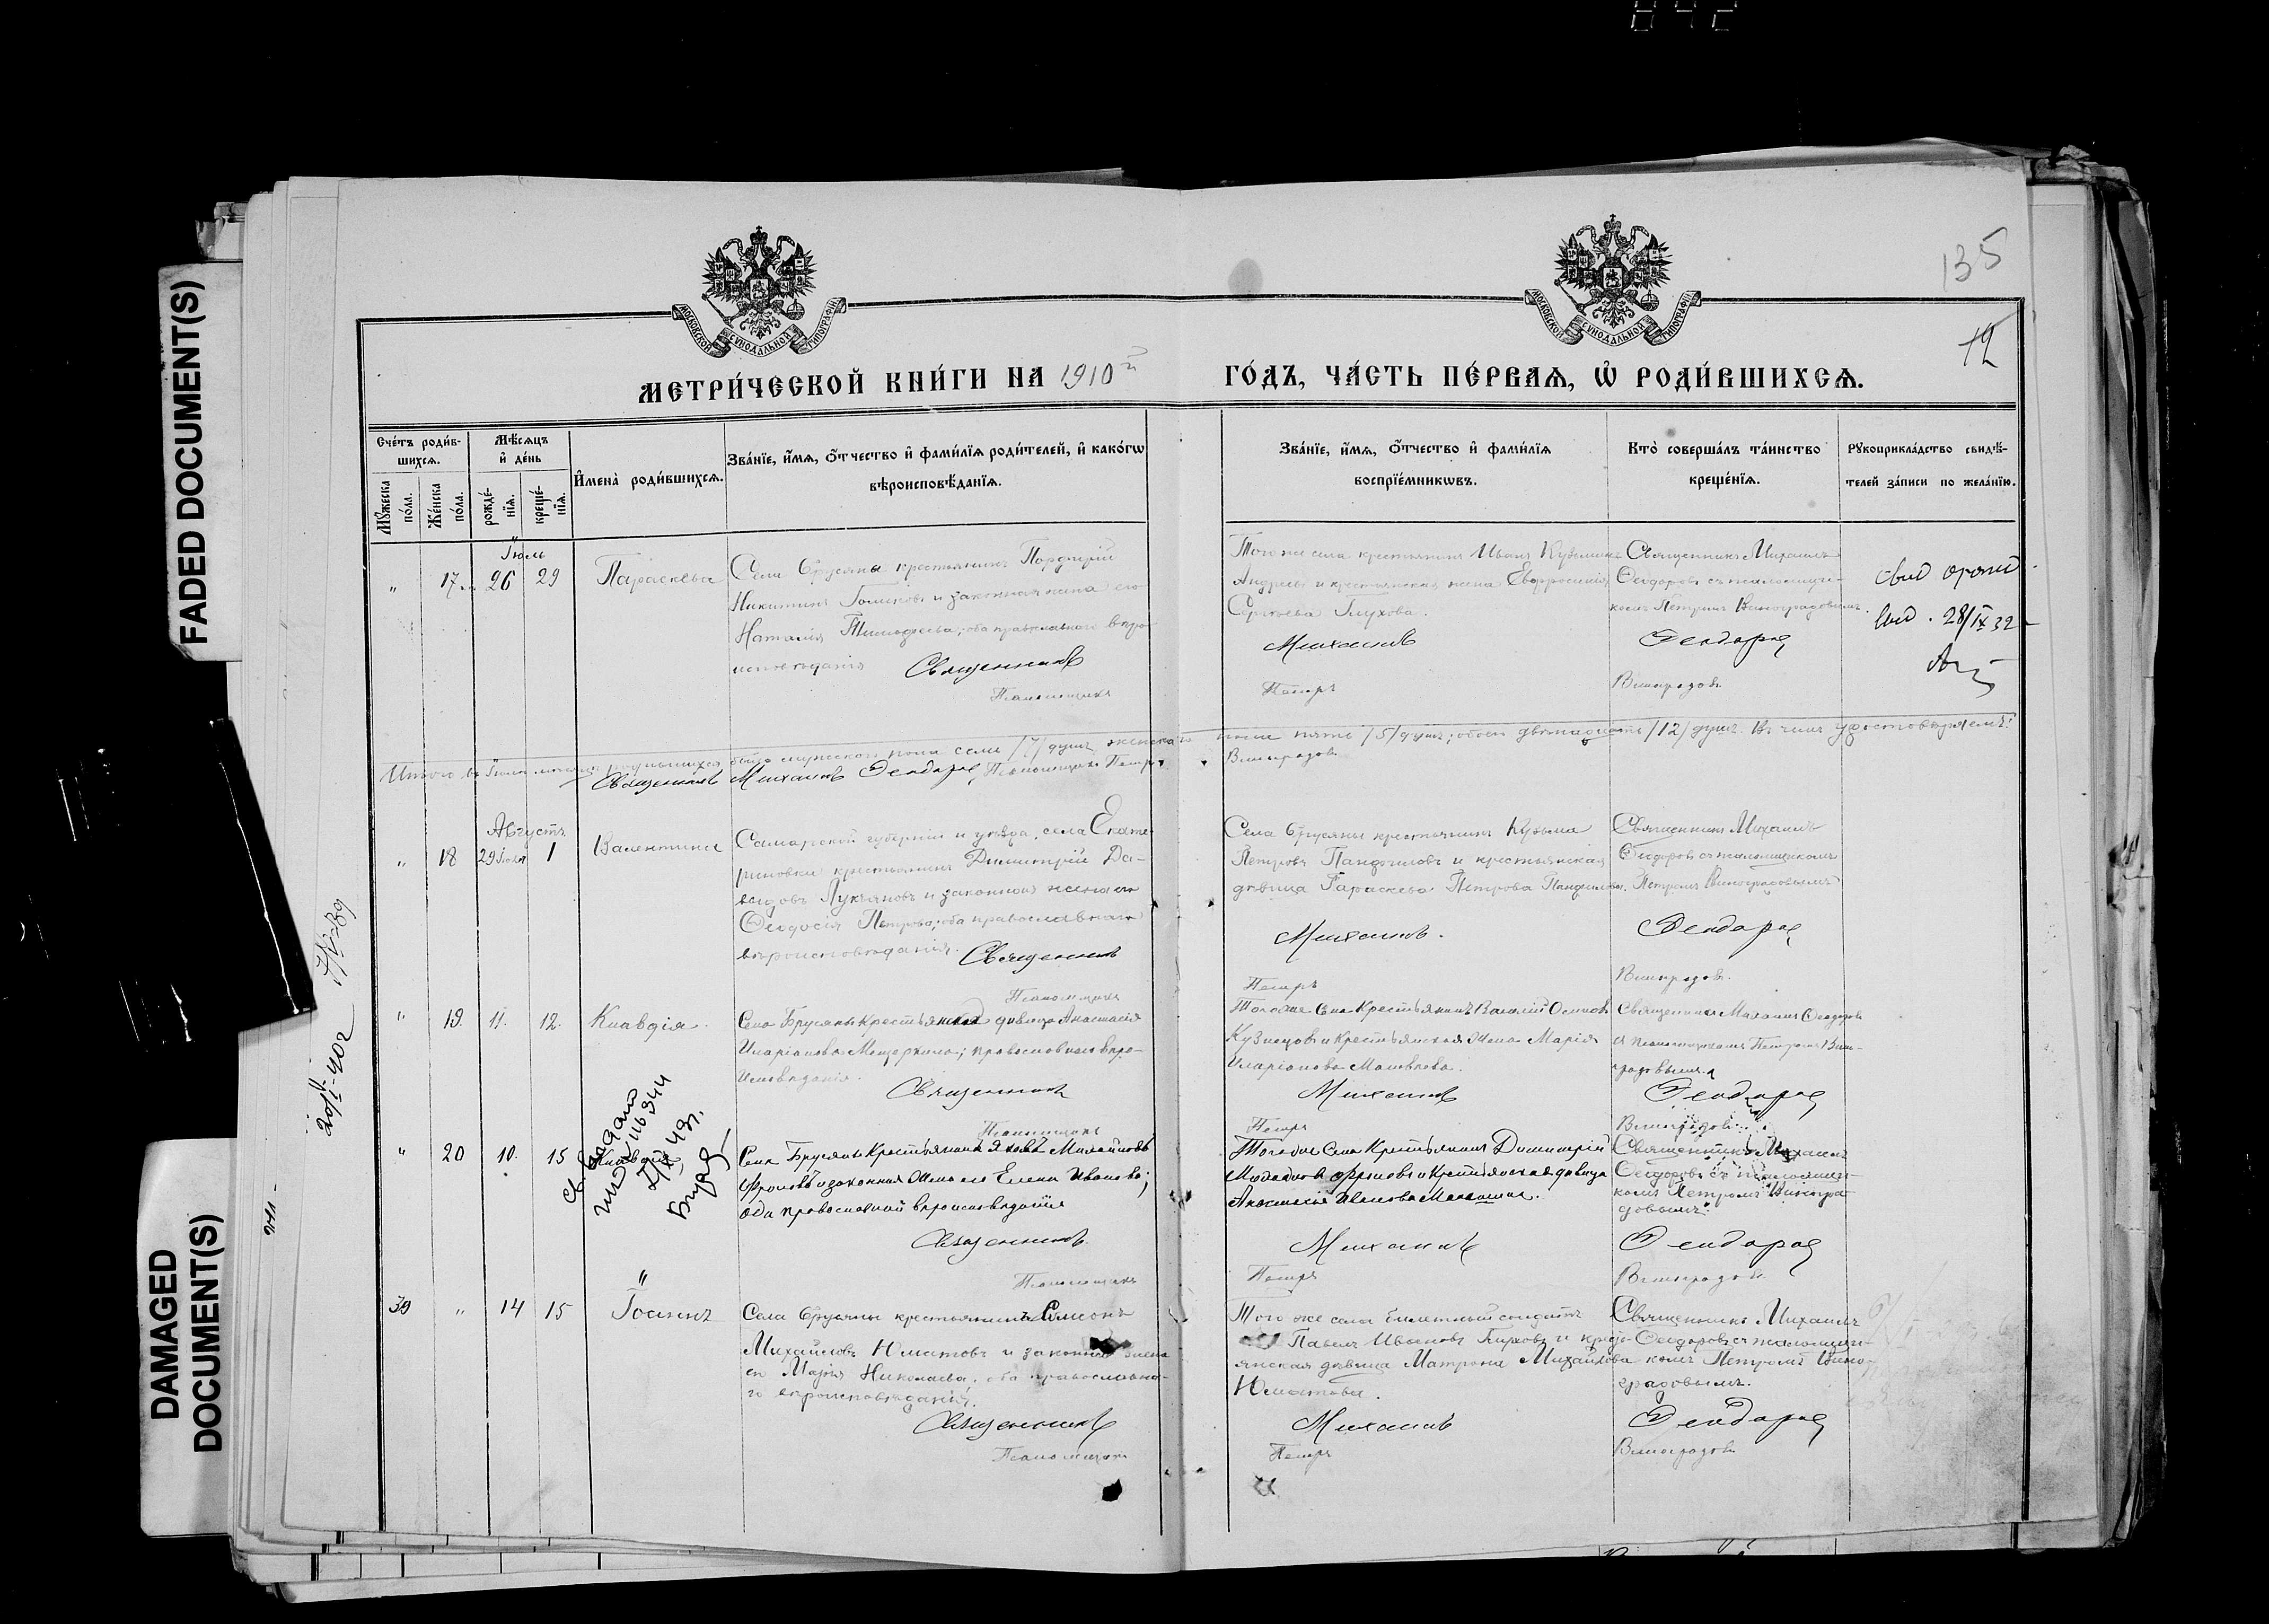 842
FADED DOCUMENT(S)
DAMAGED DOCUMENT(S)
135
12
МОСКОВСКОЙ СУНОДАЛЬНОЙ ТИПОГРАФІИ
МОСКОВСКОЙ СУНОДАЛЬНОЙ ТИПОГРАФІИ
МЕТРИ́ЧЕСКОЙ КНИ́ГИ НА 1910й ГО́ДЪ, ЧА́СТЬ ПЕ́РВАѦ, Ѡ РОДИ́ВШИХСѦ.
Сче́тъ роди́в-
шихсѧ.
Мѣ́сѧцъ
и де́нь
Мꙋ́жеска
по́ла.
Же́нска
по́ла.
рожде́-
нїѧ.
креще́-
нїѧ.
Имена̀ роди́вшихсѧ.
Зва́нїе, и́мѧ, о́тчество и фами́лїѧ роди́телей, и како́гѡ
вѣроисповѣ́данїѧ.
Зва́нїе, и́мѧ, о́тчество и фами́лїѧ
воспрїе́мникѡвъ.
Кто̀ соверша́лъ та́инство
креще́нїѧ.
Рꙋкоприкла́дство свидѣ́-
телей за́писи по жела́нїю.
Іюль
" 17. 26 29 Параскева
Села Брусяны крестьянинъ Порфирій
Никитинъ Голиковъ и законная жена его
Наталія Тимофеева; оба православнаго вѣро-
исповѣданія Священникъ
Псаломщикъ
Того же села крестьянинъ Иванъ Кузьминъ
Андреевъ и крестьянская жена Евфросинія
Сергеева Глухова.
Михаилъ
Петръ
Священникъ Михаилъ
Ѳеодоровъ съ псаломщи-
комъ Петромъ Виноградовымъ.
Ѳеодоровъ
Виноградовъ
28/IX 32
Итого въ Іюле месяце родившихся было мужескаго пола семь /7/ душъ, женскаго пола пять /5/ душъ; обоего двенадцать /12/ душъ. Въ чемъ удостоверяемъ:
Священникъ Михаилъ Ѳеодоровъ, Псаломщикъ Петръ Виноградовъ
Августъ
" 18 29 Іюля 1 Валентина
Самарской губерніи и уѣзда, села Екате-
риновки крестьянинъ Димитрій Да-
выдовъ Лукьяновъ и законная жена его
Ѳеодосія Петрова; оба православнаго
вѣроисповѣданія. Священникъ
Псаломщикъ
Села Брусяны крестьянинъ Кузьма
Петровъ Панфиловъ и крестьянская
дѣвица Параскева Петрова Панфилова.
Михаилъ.
Петръ
Священникъ Михаилъ
Ѳеодоровъ съ псаломщикомъ
Петромъ Виноградовымъ
Ѳеодоровъ
Виноградовъ.
" 19. 11. 12. Клавдія.
Села Брусяны Крестьянская дѣвица Анастасія
Иларіонова Мещерякова; православнаго вѣро-
исповѣданія.
Священникъ
Псаломщикъ
Того же Села Крестьянинъ Василій Осиповъ
Кузнецовъ и Крестьянская Жена Марія
Иларіонова Матвѣева.
Михаилъ
Петръ
Священникъ Михаилъ Ѳеодоровъ
и псаломщикомъ Петромъ Вино-
градовымъ.
Ѳеодоровъ
Виноградовъ
" 20 10. 15 Клавдія
Села Брусяны Крестьянинъ Яковъ Михайловъ
Фроловъ и законная Жена его Елена Иванова;
оба православной вѣроисповѣданія
Священникъ.
Псаломщикъ
Того же Села Крестьянинъ Димитрій
Михайловъ Фроловъ и Крестьянская дѣвица
Анастасія Иванова
Михаилъ
Петръ
Священникъ Михаилъ
Ѳеодоровъ съ псаломщи-
комъ Петромъ Виногра-
довымъ.
Ѳеодоровъ
Виноградовъ.
39 " 14 15 Іоаннъ
Села Брусяны крестьянинъ Симеонъ
Михайловъ Юматовъ и законная жена
его Марія Николаева, оба православна-
го вѣроисповѣданія.
Священникъ
Псаломщикъ
Того же села билетный солдатъ
Павелъ Ивановъ и кресть-
янская дѣвица Матрона Михайлова
Юматова.
Михаилъ
Петръ
Священникъ Михаилъ
Ѳеодоровъ съ псаломщи-
комъ Петромъ Вино-
градовымъ.
Ѳеодоровъ
Виноградовъ